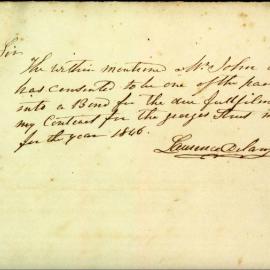 Sir
The within mentioned Mr John
has consented to be one of the
into a Bond for the due fulfilm
my Contract for the
for the year 1846.
Laurence